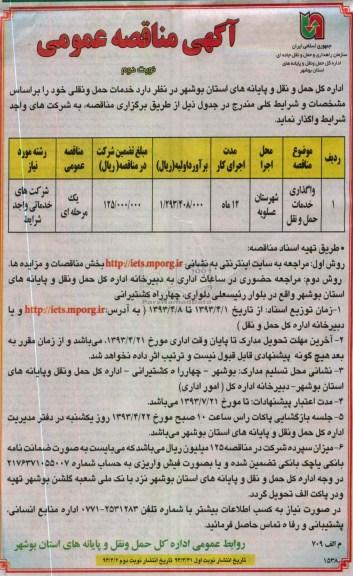 جمهوری اسلامی ایران
سازمان راهداری و حمل و نقل جاده ای
اداره کل حمل ونقل و پایانه های
استان بوشهر
آگهی مناقصه عمومی
نوبت دوم
اداره کل حمل و نقل و پایانه های استان بوشهر در نظر دارد خدمات حمل ونقلی خود را براساس
مشخصات و شرایط کلی مندرج در جدول ذیل از طریق برگزاری مناقصه، به شرکت های واجد
شرایط واگذار نماید.
ردیف موضوع مناقصه محل اجرا مدت اجرای کار برآورداولیه(ریال) مبلغ تضمین شرکت در مناقصه(ریال) مناقصه عمومی رشته مورد نیاز
۱ واگذاری خدمات حمل و نقل شهرستان عسلویه ۱۲ ماه ۱/۲۹۳/۴۰۸/۰۰۰ ۱۲۵/۰۰۰/۰۰۰ یک مرحله ای شرکت های خدماتی واجد شرایط
• طریق تهیه اسناد مناقصه:
روش اول: مراجعه به سایت اینترنتی به نشانی http://iets.mporg.ir بخش مناقصات و مزایده ها.
روش دوم: مراجعه حضوری در ساعات اداری به دبیرخانه اداره کل حمل و نقل و پایانه های
استان بوشهر واقع در بلوار رئیسعلی دلواری، چهارراه کشتیرانی
۱-زمان توزیع اسناد: از تاریخ ۱۳۹۳/۴/۱ تا ۱۳۹۳/۴/۸ ( به آدرس: http://iets.mporg.ir و یا
دبیرخانه اداره کل حمل و نقل )
۲- آخرین مهلت تحویل مدارک تا پایان وقت اداری مورخ ۱۳۹۳/۴/۲۱، می‌باشد و از زمان مقرر به
بعد هیچ گونه پیشنهادی قابل قبول نیست و ترتیب اثر داده نخواهد شد.
۳- نشانی محل تسلیم مدارک: بوشهر - چهارراه کشتیرانی - اداره کل حمل ونقل وپایانه های
استان بوشهر-دبیرخانه اداره کل ( امور اداری)
۴- مدت اعتبار پیشنهادات: تا مورخ ۱۳۹۳/۷/۲۱ می‌باشد.
۵- جلسه بازگشایی پاکات راس ساعت ۱۰ صبح مورخ ۱۳۹۳/۴/۲۲ روز یکشنبه در دفتر مدیریت
اداره کل حمل و نقل و پایانه های استان بوشهر می‌باشد.
۶- میزان سپرده شرکت در مناقصه ۱۲۵ میلیون ریال می‌باشد که می‌بایست به صورت ضمانت نامه
بانکی یاچک بانکی تضمین شده و یا بصورت فیش واریزی به حساب شماره ۲۱۷۶۳۷۱۰۵۵۰۰۷
در وجه اداره کل حمل و نقل و پایانه های استان بوشهر نزد با نک ملی شعبه گلشن بوشهر تهیه
ودر پاکت الف تحویل گردد.
در صورت نیاز به کسب اطلاعات بیشتر با شماره تلفن ۲۵۳۱۲۸۳-۰۷۷۱ اداره منابع انسانی،
پشتیبانی و رفاه تماس حاصل فرمائید.
م الف ۷۰۹
روابط عمومی اداره کل حمل ونقل و پایانه های استان بوشهر
تاریخ انتشار نوبت اول ۹۳/۳/۳۱ تاریخ انتشار نوبت دوم ۹۳/۴/۲
۱۵۳۸